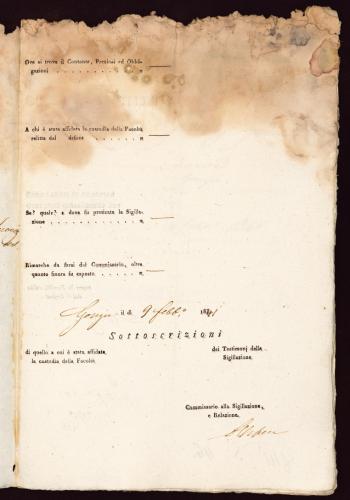 Ove si trova il Contante, Preziosi ed Obbli-
gazioni . . . . . . . . . . . . . . . „
A chi è stata affidata la custodia della Facoltà
relitta dal defunto . . . . . . . . „
Se? quale? e dove fu praticata la Sigilla-
zione . . . . . . . . . . . . . . . „
Rimarche da farsi dal Commissario, oltre
quanto finora fu esposto . . . . . . . „
il dì 9 Febb.o 1841
Sottoscrizioni
di quello a cui è stata affidata
la custodia della Facoltà.
dei Testimonj della
Sigillazione.
Commissario alla Sigillazione,
e Relazione.